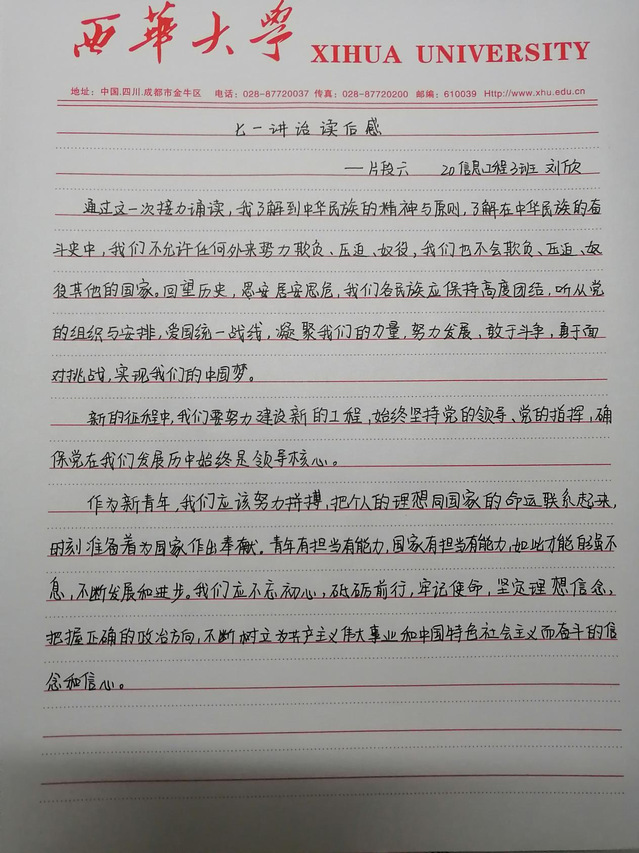 西華大學 XIHUA UNIVERSITY
地址：中国.四川.成都市金牛区 电话：028-87720037 传真：028-87720200 邮编：610039 Http://www.xhu.edu.cn
七一讲话读后感
——片段六 20信息工程3班 刘欣
通过这一次接力诵读，我了解到中华民族的精神与原则，了解在中华民族的奋
斗史中，我们不允许任何外来势力欺负、压迫、奴役，我们也不会欺负、压迫、奴
役其他的国家。回望历史，思安居安思危，我们各民族应保持高度团结，听从党
的组织与安排，爱国统一战线，凝聚我们的力量，努力发展、敢于斗争，勇于面
对挑战，实现我们的中国梦。
新的征程中，我们要努力建设新的工程，始终坚持党的领导、党的指挥，确
保党在我们发展历中始终是领导核心。
作为新青年，我们应该努力拼搏，把个人的理想同国家的命运联系起来，
时刻准备着为国家作出奉献。青年有担当有能力，国家有担当有能力，如此才能自强不
息，不断发展和进步。我们应不忘初心，砥砺前行，牢记使命，坚定理想信念，
把握正确的政治方向，不断树立为共产主义伟大事业和中国特色社会主义而奋斗的信
念和信心。